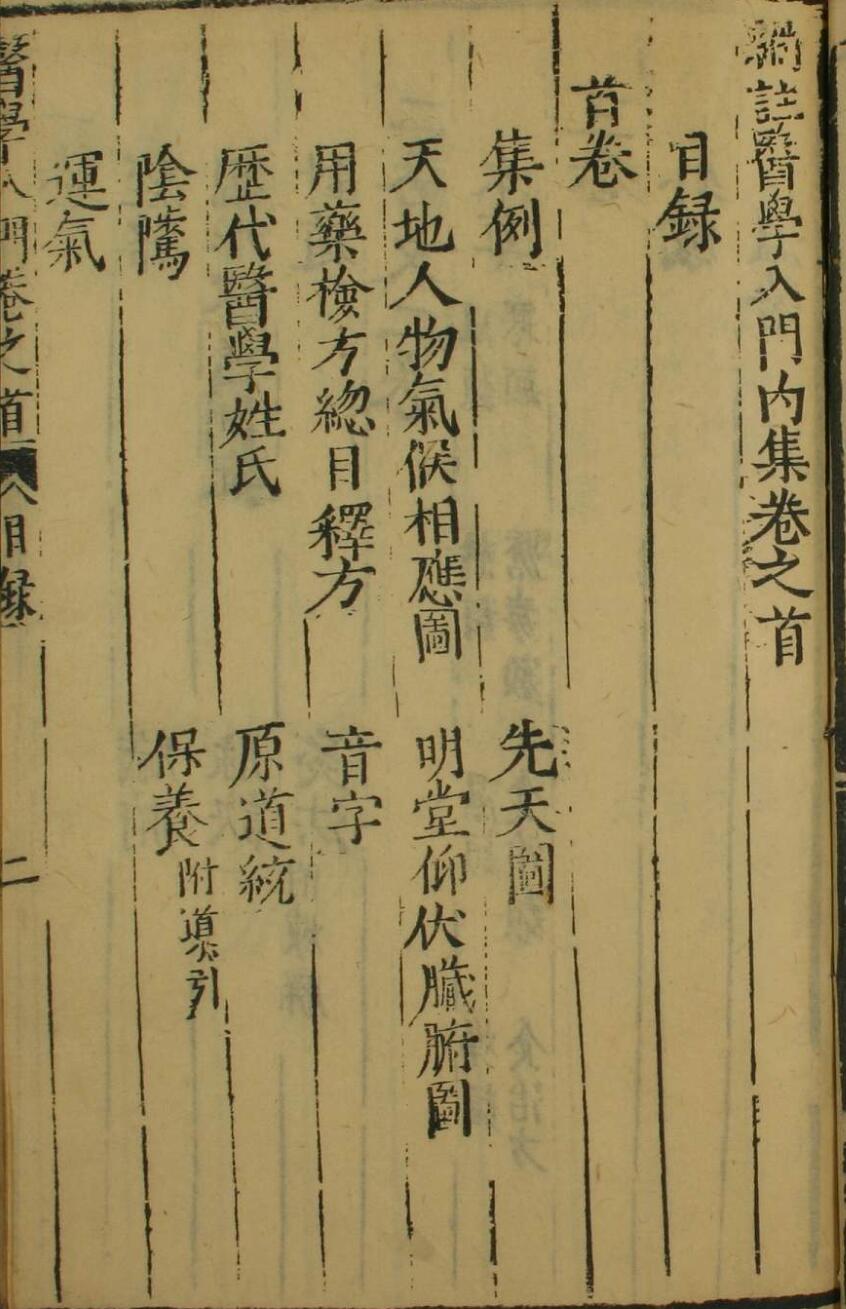 編註醫學入門內集卷之首
目録
首卷
集例 先天圖
天地人物氣候相應圖 明堂仰伏臟腑圖
用藥檢方總目釋方 音字
歷代醫學姓氏 原道統
陰隲 保養附導引
運氣
醫學入門卷之首 目録 二